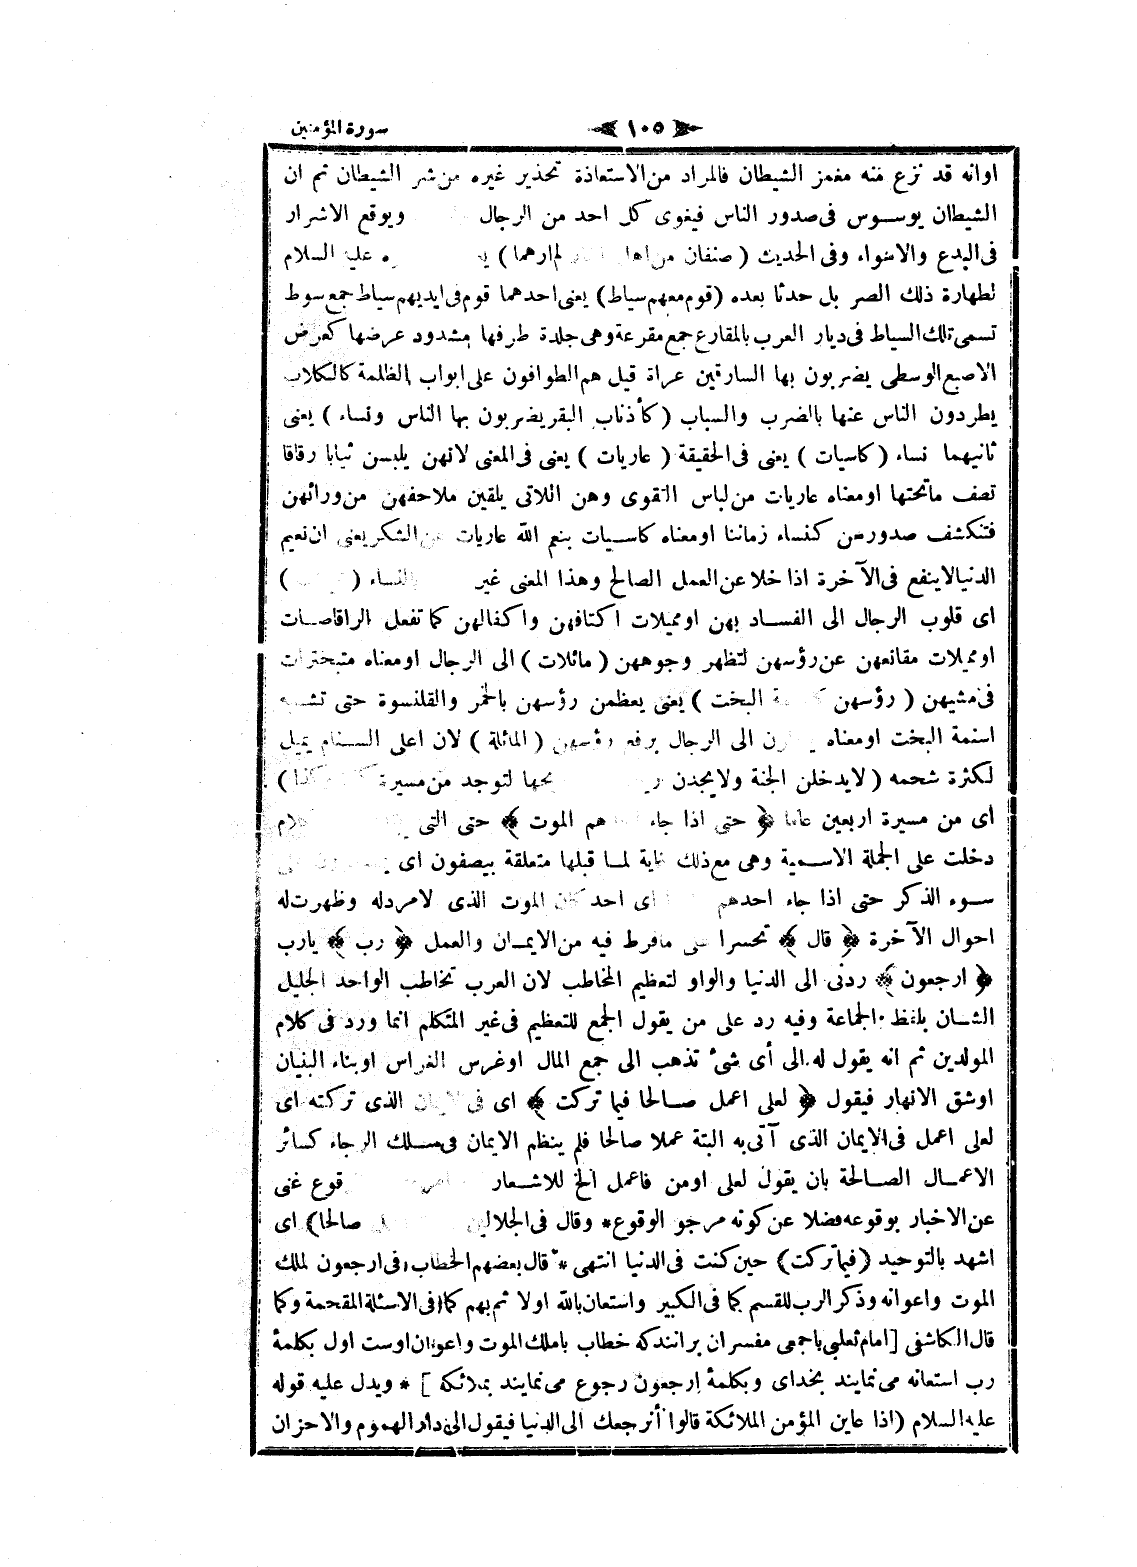 سورة المؤمنين ١٠٥
اوانه قد نزع منه مغمز الشيطان فالمراد من الاستعاذة تحذير غيره من شر الشيطان ثم ان
الشيطان يوسوس فى صدور الناس فيغوى كل احد من الرجال ويوقع الاشرار
فى البدع والاهواء وفى الحديث (صنفان من اهل لم ارهما) عليه السلام
لطهارة ذلك العصر بل حدثا بعده (قوم معهم سياط) يعنى احدهما قوم فى ايديهم سياط جمع سوط
تسمى تلك السياط فى ديار العرب بالمقارع جمع مقرعة وهى جلدة طرفها مشدود عرضها كعرض
الاصبع الوسطى يضربون بها السارقين عراة قيل هم الطوافون على ابواب الظلمة كالكلاب
يطردون الناس عنها بالضرب والسباب (كأذناب البقر يضربون بها الناس ونساء) يعنى
ثانيهما نساء (كاسيات) يعنى فى الحقيقة (عاريات) يعنى فى المعنى لانهن يلبسن ثيابا رقاقا
تصف ماتحتها اومعناه عاريات من لباس التقوى وهن اللاتى يلقين ملاحفهن من ورائهن
فتنكشف صدورهن كنساء زماننا اومعناه كاسيات بنعم الله عاريات عن الشكر يعنى ان نعيم
الدنيا لاينفع فى الآخرة اذا خلا عن العمل الصالح وهذا المعنى غير بالنساء ( )
اى قلوب الرجال الى الفساد بهن اومميلات اكتافهن واكفالهن كما تفعل الراقصات
اومميلات مقانعهن عن رؤسهن لتظهر وجوههن (مائلات) الى الرجال اومعناه متبخترات
فى مشيهن (رؤسهن البخت) يعنى يعظمن رؤسهن بالخمر والقلنسوة حتى تشبه
اسنمة البخت اومعناه الى الرجال برفع رؤسهن (المائلة) لان اعلى السنام يميل
لكثرة شحمه (لايدخلن الجنة ولايجدن لتوجد من مسيرة )
اى من مسيرة اربعين عاما ﴿ حتى اذا جاء هم الموت ﴾ حتى التى
دخلت على الجملة الاسمية وهى مع ذلك غاية لما قبلها متعلقة بيصفون اى
سوء الذكر حتى اذا جاء احدهم اى احد كان الموت الذى لامردله وظهرت له
احوال الآخرة ﴿ قال ﴾ تحسرا على مافرط فيه من الايمان والعمل ﴿ رب ﴾ يارب
﴿ ارجعون ﴾ ردنى الى الدنيا والواو لتعظيم المخاطب لان العرب تخاطب الواحد الجليل
الشان بلفظ الجماعة وفيه رد على من يقول الجمع للتعظيم فى غير المتكلم انما ورد فى كلام
المولدين ثم انه يقول له الى أى شئ تذهب الى جمع المال اوغرس الغراس اوبناء البنيان
اوشق الانهار فيقول ﴿ لعلى اعمل صالحا فيما تركت ﴾ اى فى الايمان الذى تركته اى
لعلى اعمل فى الايمان الذى آتى به البتة عملا صالحا فلم ينظم الايمان فى سلك الرجاء كسائر
الاعمال الصالحة بان يقول لعلى اومن فاعمل الخ للاشعار غنى
عن الاخبار بوقوعه فضلا عن كونه مرجو الوقوع * وقال فى الجلالين صالحا) اى
اشهد بالتوحيد (فيما تركت) حين كنت فى الدنيا انتهى * قال بعضهم الخطاب فى ارجعون لملك
الموت واعوانه وذكر الرب للقسم كما فى الكبير واستعان بالله اولا ثم بهم كما فى الاسئلة المقحمة وكما
قال الكاشفى [امام ثعلبى باجمعى مفسران برانندكه خطاب باملك الموت واعوان اوست اول بكلمة
رب استعانه مى نمايند بخداى وبكلمة ارجعون رجوع مى نمايند بملائكه] * ويدل عليه قوله
عليه السلام (اذا عاين المؤمن الملائكة قالوا أنرجعك الى الدنيا فيقول الى دار الهموم والاحزان